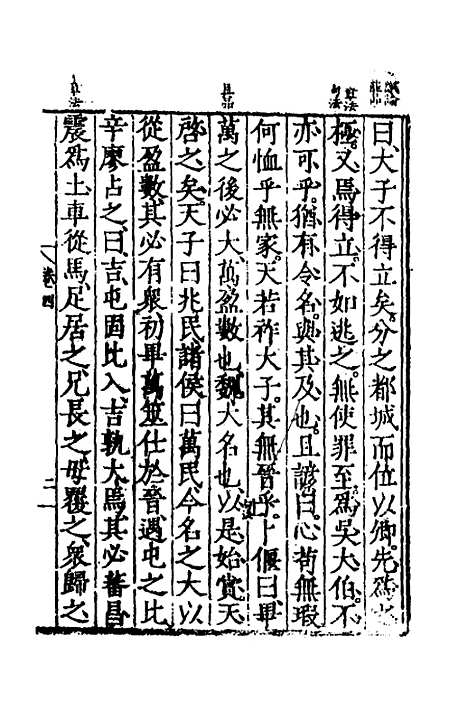 曰大子不得立矣分之都城而位以卿先爲之
極又焉得立不如逃之無使罪至爲吳大伯不
亦可乎猶有令名與其及也且諺曰心苟無瑕
何恤乎無家天若祚大子其無晉乎卜偃曰畢
萬之後必大萬盈數也魏大名也以是始賞天
啓之矣天子曰兆民諸侯曰萬民今名之大以
從盈數其必有衆初畢萬筮仕於晉遇屯之比
辛廖占之曰吉屯固比入吉孰大焉其必蕃昌
震爲土車從馬足居之兄長之母覆之衆歸之
卷四
二
句法